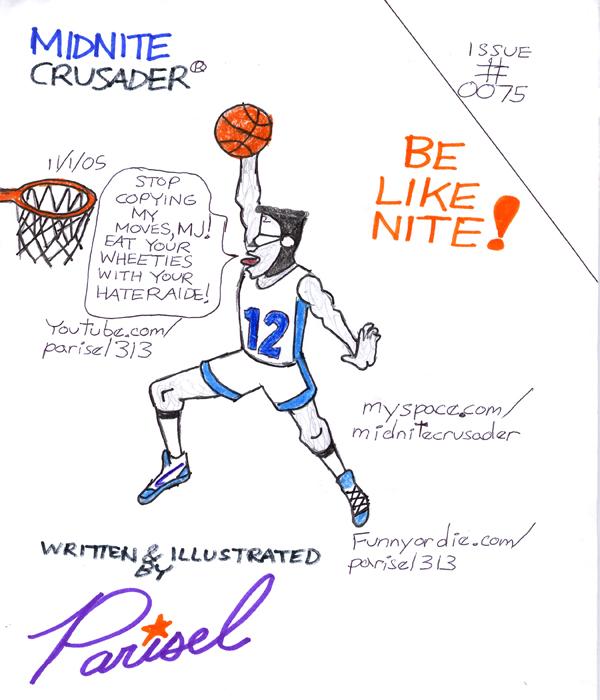 MIDNITE
CRUSADER®
ISSUE
#
0075
BE
LIKE
NITE!
11/1/05
STOP
COPYING
MY
MOVES, MJ!
EAT YOUR
WHEETIES
WITH YOUR
HATERAIDE!
Youtube.com/
parisel313
12
myspace.com/
midnitecrusader
Funnyordie.com/
parisel313
WRITTEN & ILLUSTRATED
BY
Parisel